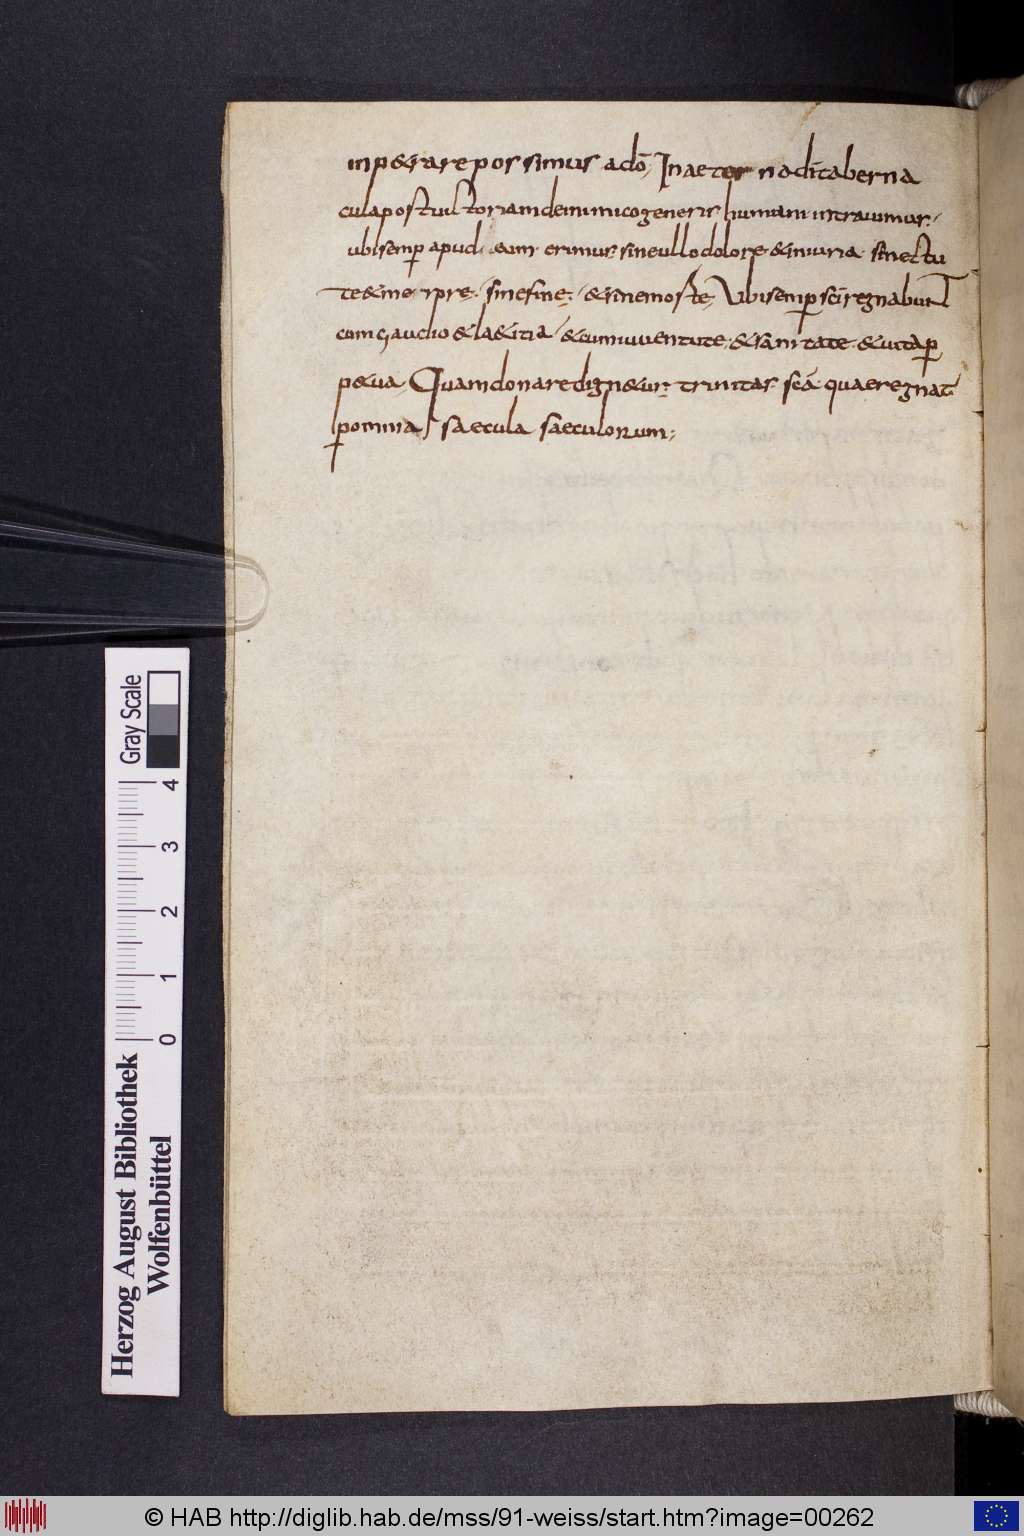 inp&rare possimus ad dō, In aeterna di taberna
cula post victoriam de inimico generis humani intravimus.
ubi semp apud eum erimus sine ullo dolore & iniuria senectu
te & me rore, sine fine; & sine moste, Ubi semp sc̄i regnabunt
cum gaudio & la&itia, & cum iuventute & sanitate & vita p
p&ua. Quam donare dign&ur. trinitas sc̄a quae regnat
p omnia saecula saeculorum;
Gray Scale
4
3
2
1
0
Herzog August Bibliothek
Wolfenbüttel
© HAB http://diglib.hab.de/mss/91-weiss/start.htm?image=00262